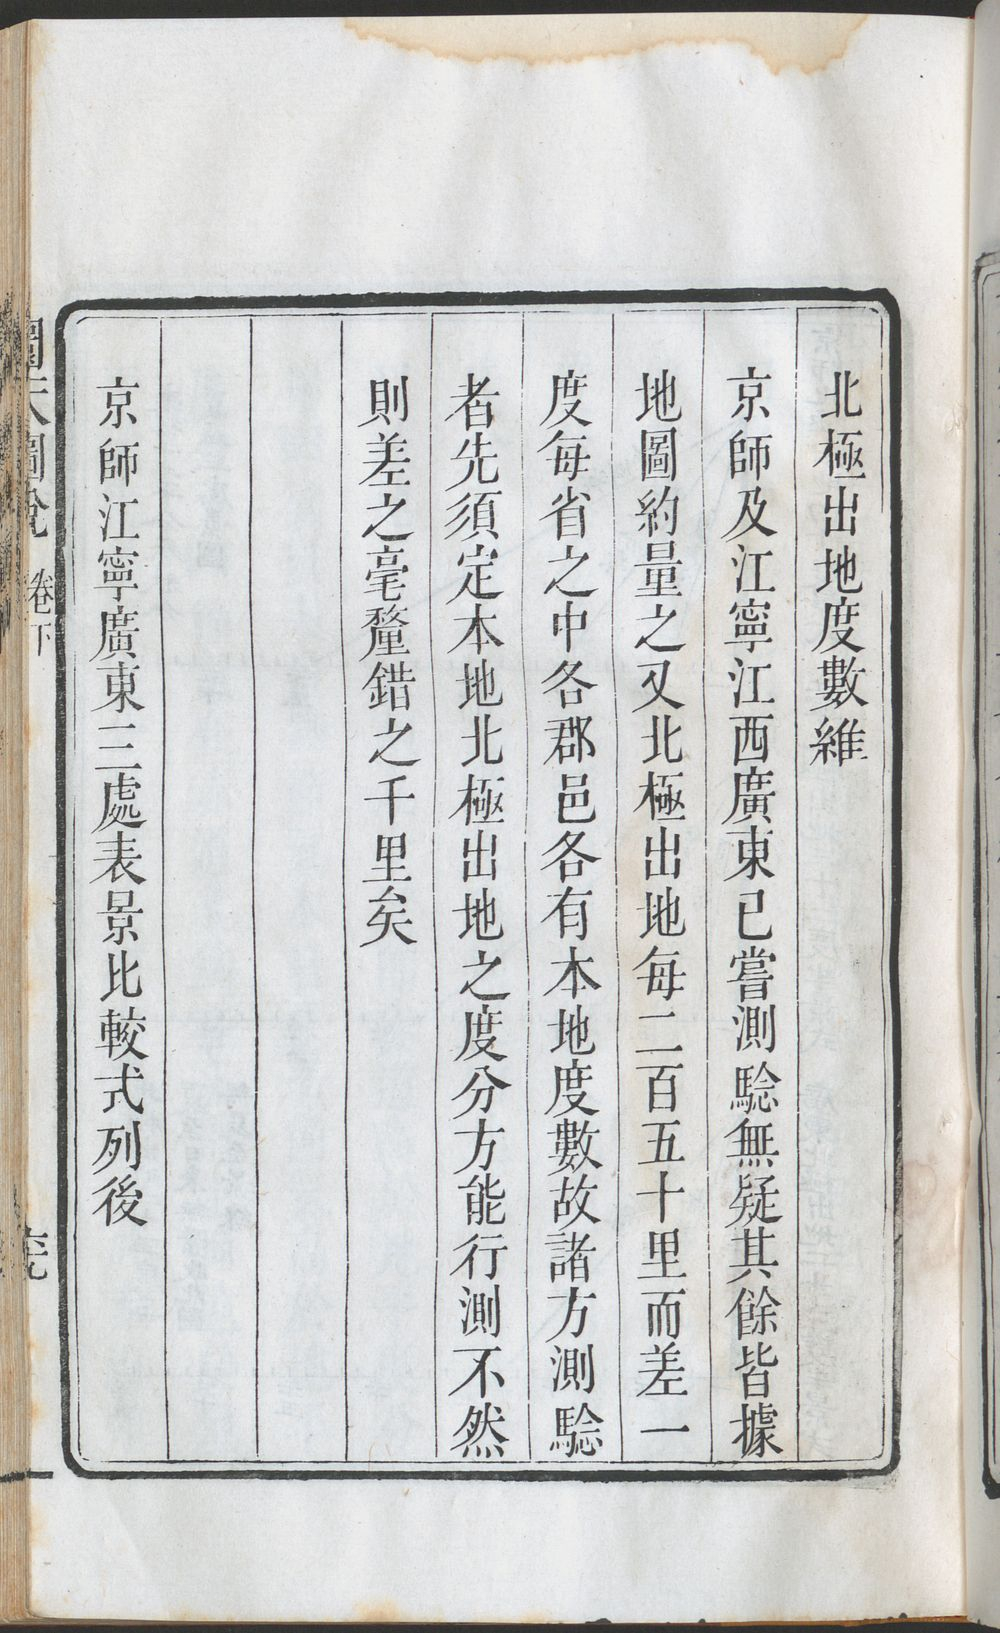 北極出地度數維
京師及江寧江西廣東已嘗測騐無疑其餘皆據
地圖約量之又北極出地每二百五十里而差一
度每省之中各郡邑各有本地度數故諸方測騐
者先須定本地北極出地之度分方能行測不然
則差之毫釐錯之千里矣
京師江寧廣東三處表景比較式列後
天圖說 卷下